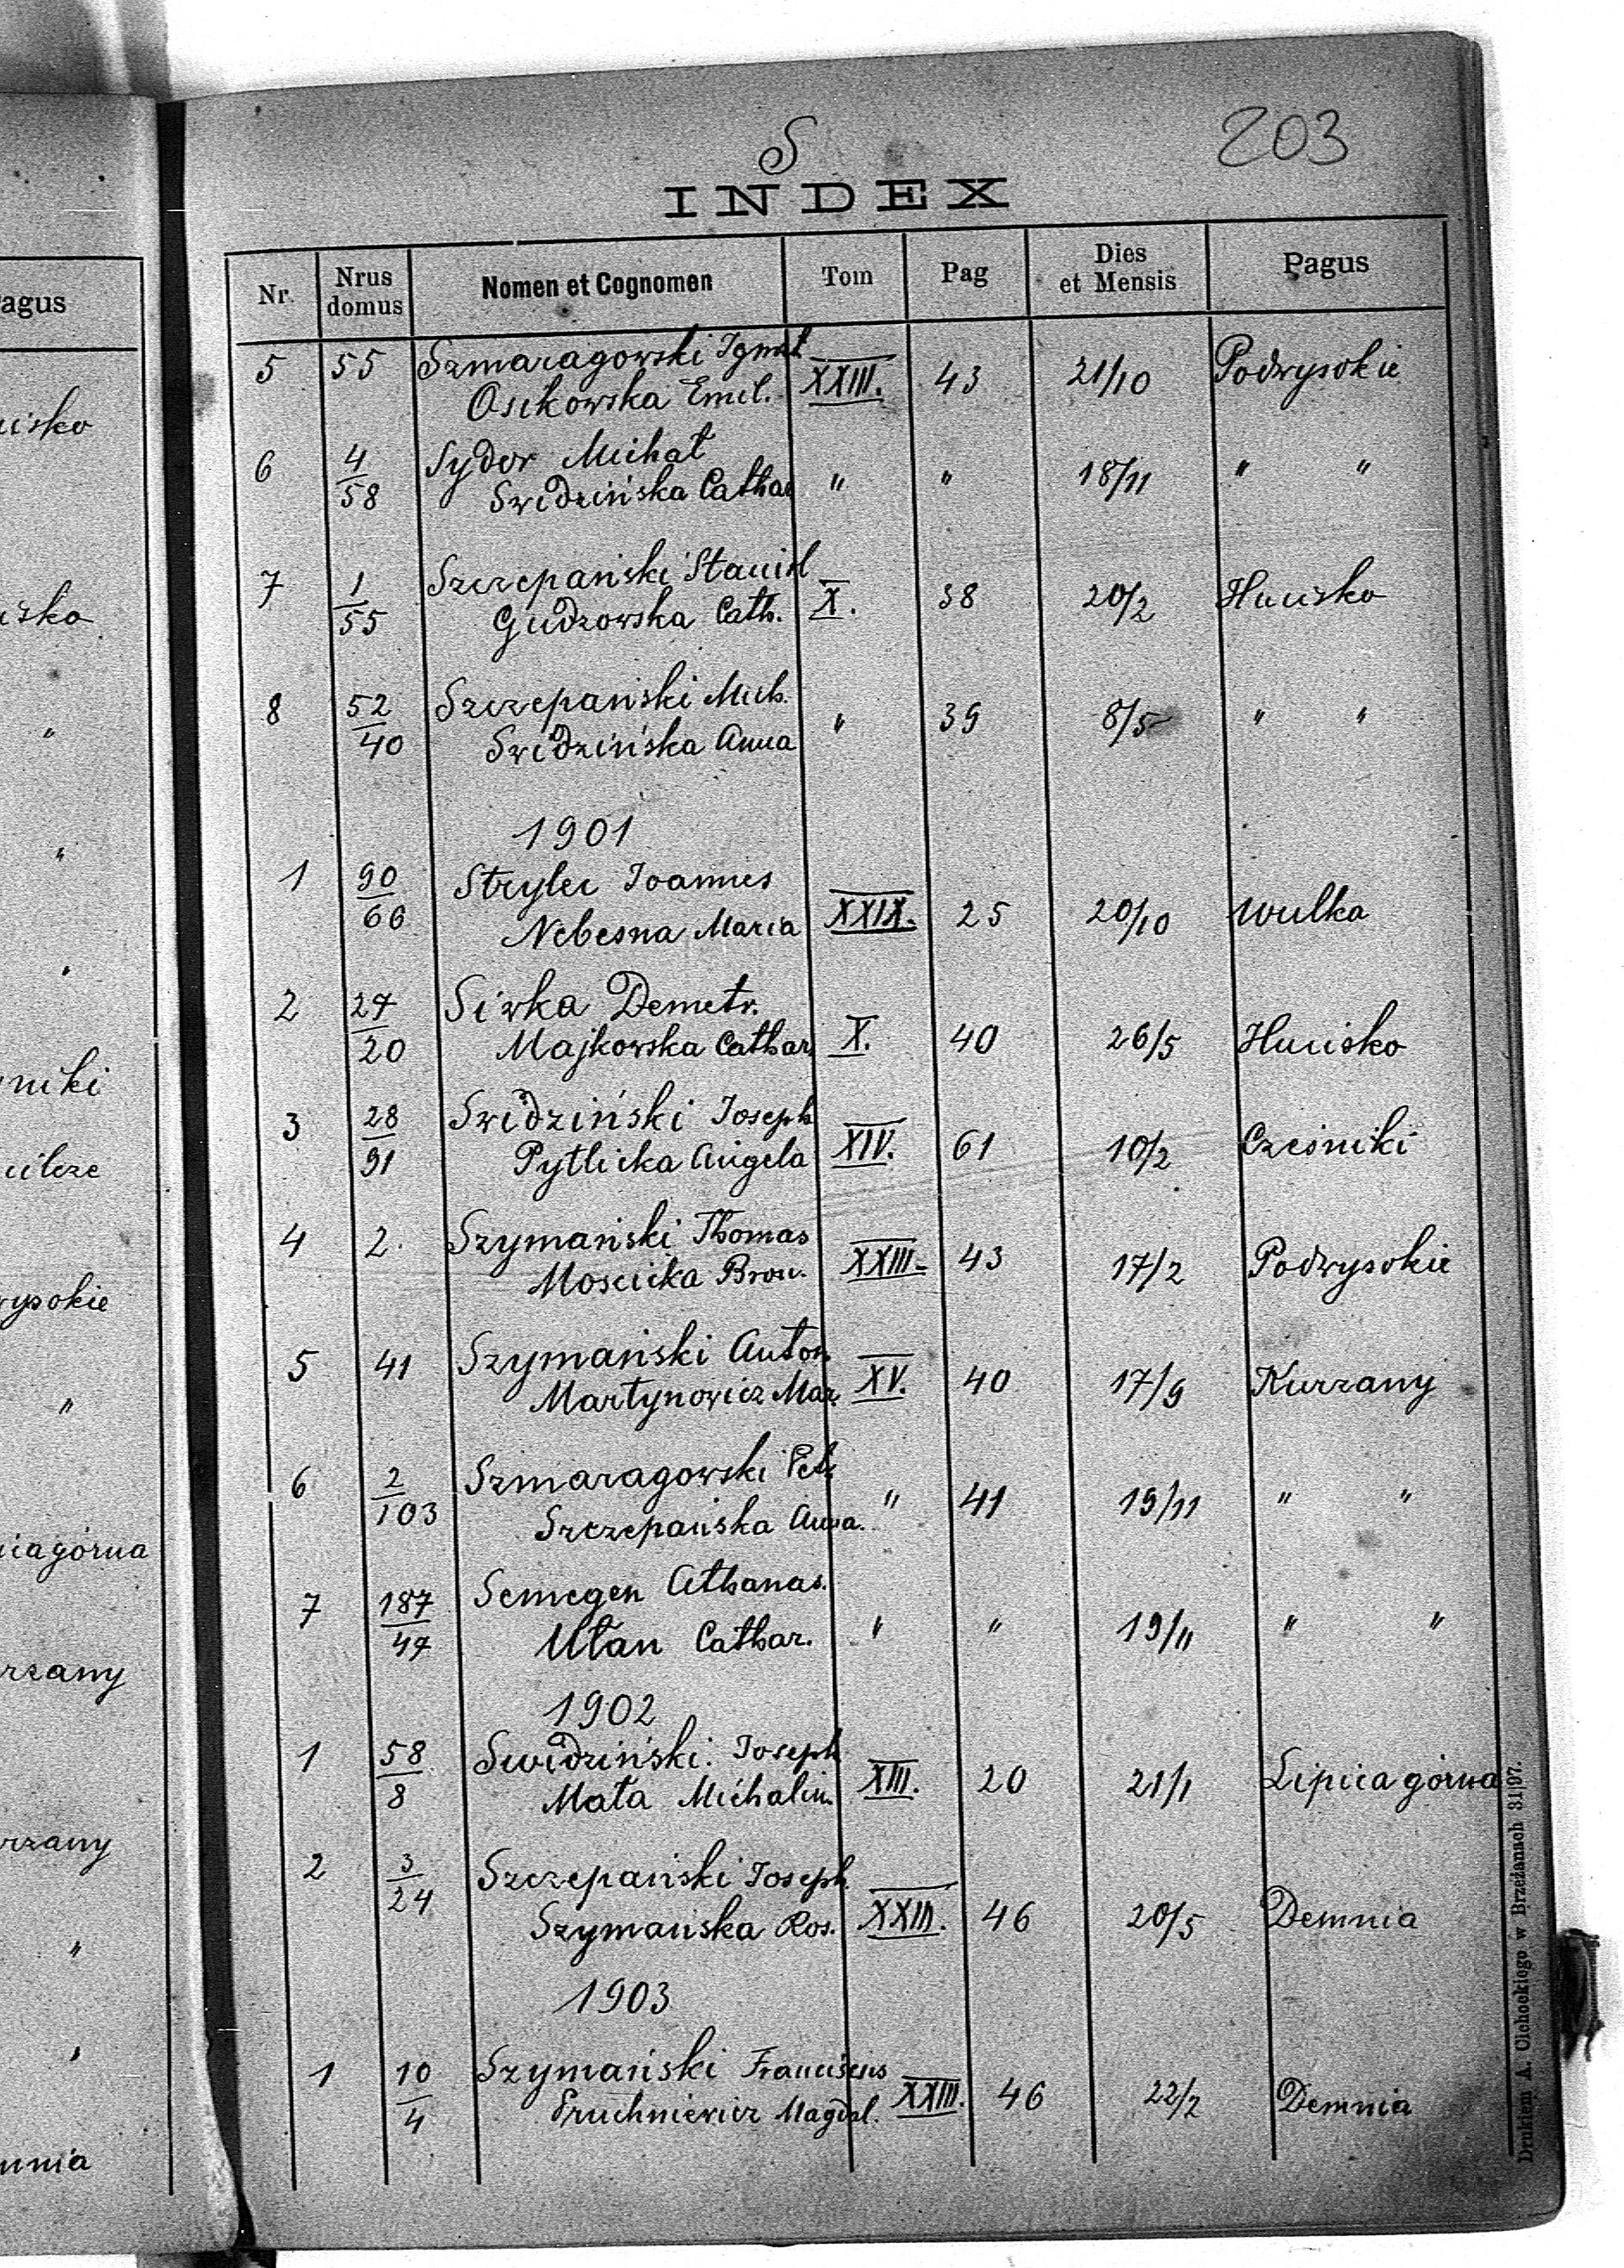 agus
uisko
isko
"
"
"
"
niki
ilcze
wysokie
"
ica górna
rzany
rzany
"
"
mnia
203
S
INDEX
Nr. Nrus domus Nomen et Cognomen Tom Pag Dies et Mensis Pagus
5 55 Szmaragowski Ignat
Osikowska Emil. XXIII. 43 21/10 Podwysokie
6 4/58 Sydor Michał
Swidzińska Cathar " " 18/11 " "
7 1/55 Szczepański Stanisl
Gudzowska Cath. X. 38 20/2 Hucisko
8 52/40 Szczepański Mich.
Swidzińska Anna " 39 8/5 " "
1901
1 90/66 Strylec Joannes
Nebesna Maria XXIX. 25 20/10 Wulka
2 27/20 Siwka Demetr.
Majkowska Cathar. X. 40 26/5 Hucisko
3 28/91 Swidziński Joseph
Pytlicka Angela XIV. 61 10/2 Cześniki
4 2. Szymański Thomas
Moscicka Bron. XXIII. 43 17/2 Podwysokie
5 41 Szymański Anton.
Martynowicz Mar. XV. 40 17/9 Kurzany
6 2/103 Szmaragowski Pet.
Szczepańska Anna. " 41 19/11 " "
7 187/47 Semegen Athanas.
Ułan Cathar. " " 19/11 " "
1902
1 58/8 Swidziński. Joseph
Mata Michalin. XIII. 20 21/1 Lipica górna
2 3/24 Szczepański Joseph.
Szymańska Ros. XXIII. 46 20/5 Demnia
1903
1 10/4 Szymański Franciscus
Pruchniewicz Magdal. XXIII. 46 22/2 Demnia
Drukiem A. Cichockiego w Brzeżanach 31|97.